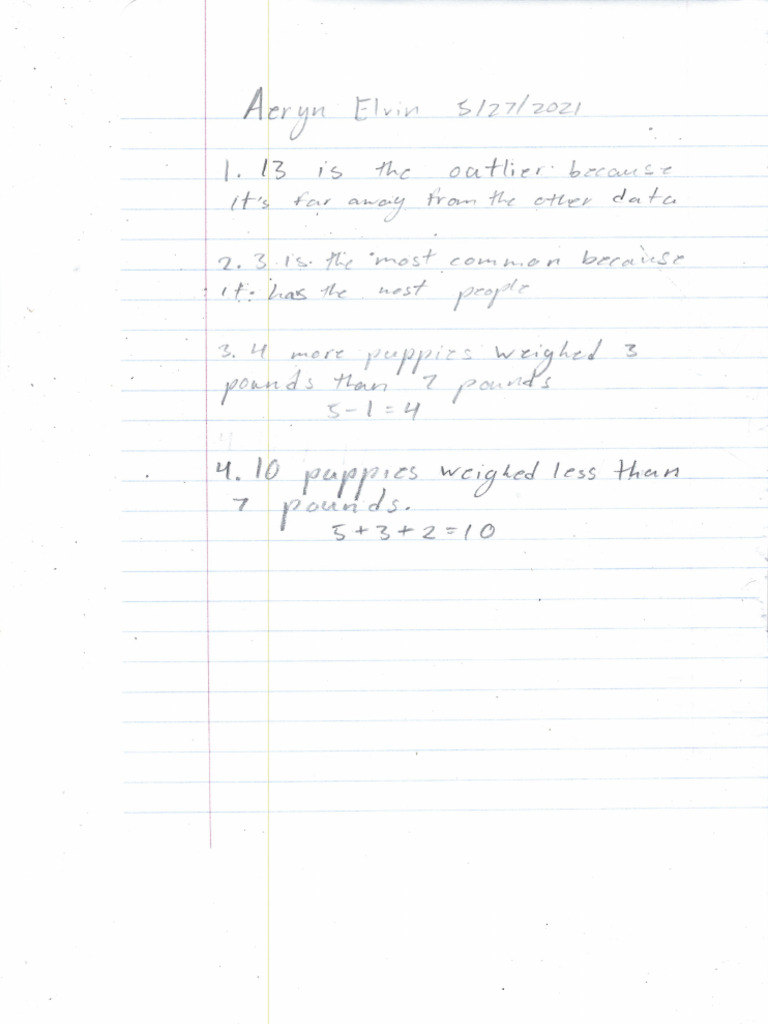 Aeryn Elvin 5/27/2021
1. 13 is the outlier because
it's far away from the other data
2. 3 is the most common because
it has the most people
3. 4 more puppies weighed 3
pounds than 7 pounds
5-1=4
4. 10 puppies weighed less than
7 pounds.
5+3+2=10